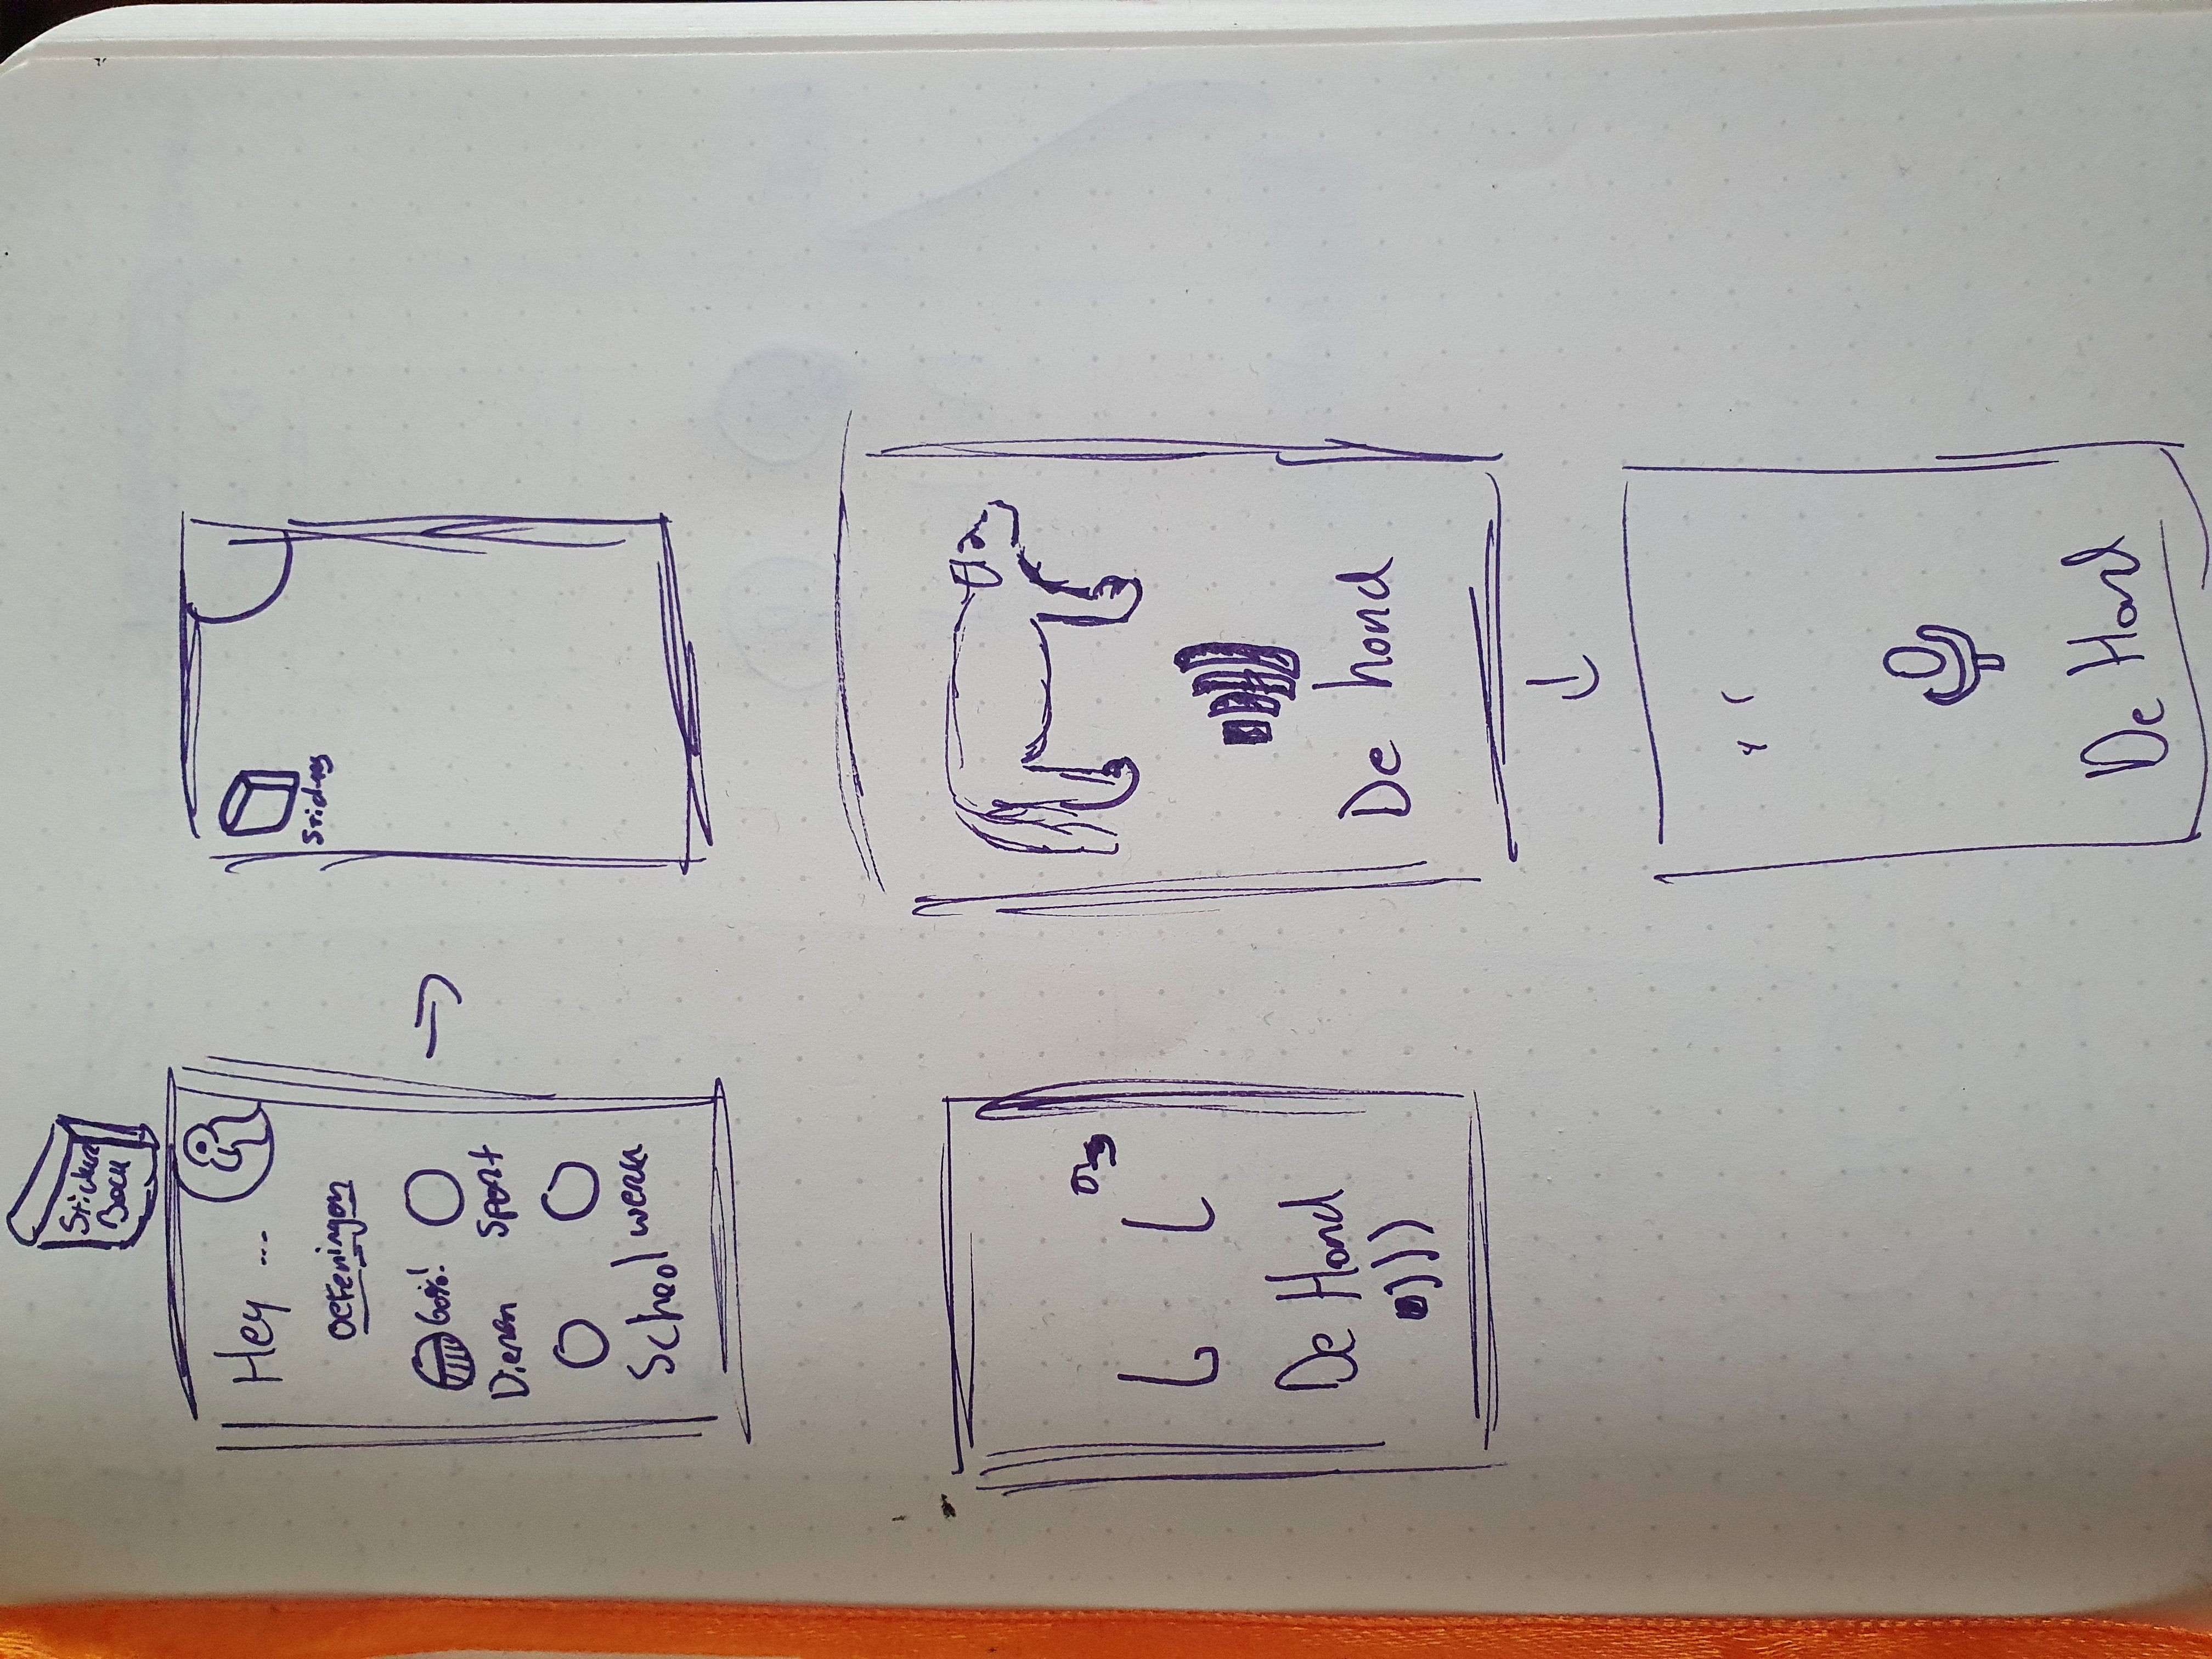 Sticker
Boek
Hey ...
Oefeningen
60%!
Dieren
Sport
School
werk
Stickers
De Hond
De hond
De Hond